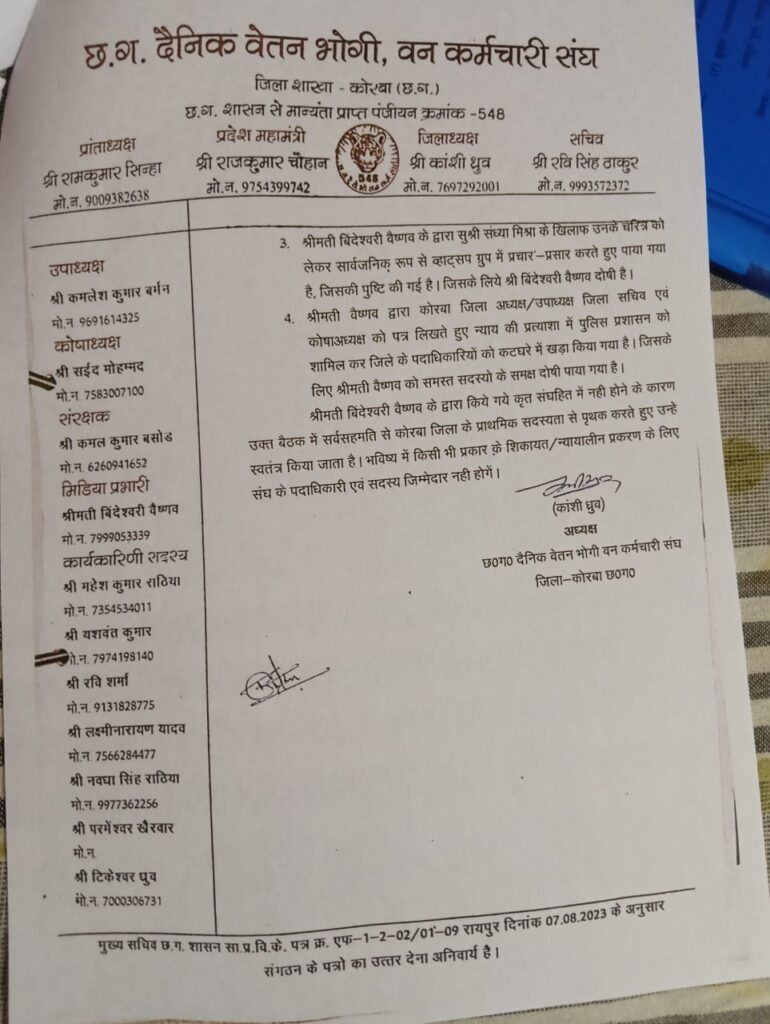 छ.ग. दैनिक वेतन भोगी, वन कर्मचारी संघ
जिला शाखा - कोरबा (छ.ग.)
छ.ग. शासन से मान्यता प्राप्त पंजीयन क्रमांक -548
प्रांताध्यक्ष
श्री रामकुमार सिन्हा
मो.न. 9009382638
प्रदेश महामंत्री
श्री राजकुमार चौहान
मो.न. 9754399742
548
जिलाध्यक्ष
श्री कांशी ध्रुव
मो.न. 7697292001
सचिव
श्री रवि सिंह ठाकुर
मो.न. 9993572372
उपाध्यक्ष
श्री कमलेश कुमार बर्मन
मो.न 9691614325
कोषाध्यक्ष
श्री सईद मोहम्मद
मो.न. 7583007100
संरक्षक
श्री कमल कुमार बसोड
मो.न. 6260941652
मिडिया प्रभारी
श्रीमती बिंदेश्वरी वैष्णव
मो.न. 7999053339
कार्यकारिणी सदस्य
श्री महेश कुमार राठिया
मो.न. 7354534011
श्री यशवंत कुमार
मो.न. 7974198140
श्री रवि शर्मा
मो.न. 9131828775
श्री लक्ष्मीनारायण यादव
मो.न. 7566284477
श्री नवघा सिंह राठिया
मो.न. 9977362256
श्री परमेंश्वर खैरवार
मो.न.
श्री टिकेश्वर ध्रुव
मो.न. 7000306731
3. श्रीमती बिंदेश्वरी वैष्णव के द्वारा सुश्री संध्या मिश्रा के खिलाफ उनके चरित्र को
लेकर सार्वजनिक रूप से व्हाट्सप ग्रुप में प्रचार-प्रसार करते हुए पाया गया
है, जिसकी पुष्टि की गई है। जिसके लिये श्री बिंदेश्वरी वैष्णव दोषी है।
4. श्रीमती वैष्णव द्वारा कोरबा जिला अध्यक्ष/उपाध्यक्ष जिला सचिव एवं
कोषाअध्यक्ष को पत्र लिखते हुए न्याय की प्रत्याशा में पुलिस प्रशासन को
शामिल कर जिले के पदाधिकारियों को कटघरे में खड़ा किया गया है। जिसके
लिए श्रीमती वैष्णव को समस्त सदस्यो के समक्ष दोषी पाया गया है।
श्रीमती बिंदेश्वरी वैष्णव के द्वारा किये गये कृत संघहित में नही होने के कारण
उक्त बैठक में सर्वसहमति से कोरबा जिला के प्राथमिक सदस्यता से पृथक करते हुए उन्हे
स्वतंत्र किया जाता है। भविष्य में किसी भी प्रकार के शिकायत/न्यायालीन प्रकरण के लिए
संघ के पदाधिकारी एवं सदस्य जिम्मेदार नही होगें।
(कांशी ध्रुव)
अध्यक्ष
छ0ग0 दैनिक वेतन भोगी वन कर्मचारी संघ
जिला-कोरबा छ0ग0
मुख्य सचिव छ.ग. शासन सा.प्र.वि.के. पत्र क्र. एफ-1-2-02/01-09 रायपुर दिनांक 07.08.2023 के अनुसार
संगठन के पत्रो का उत्तर देना अनिवार्य है।